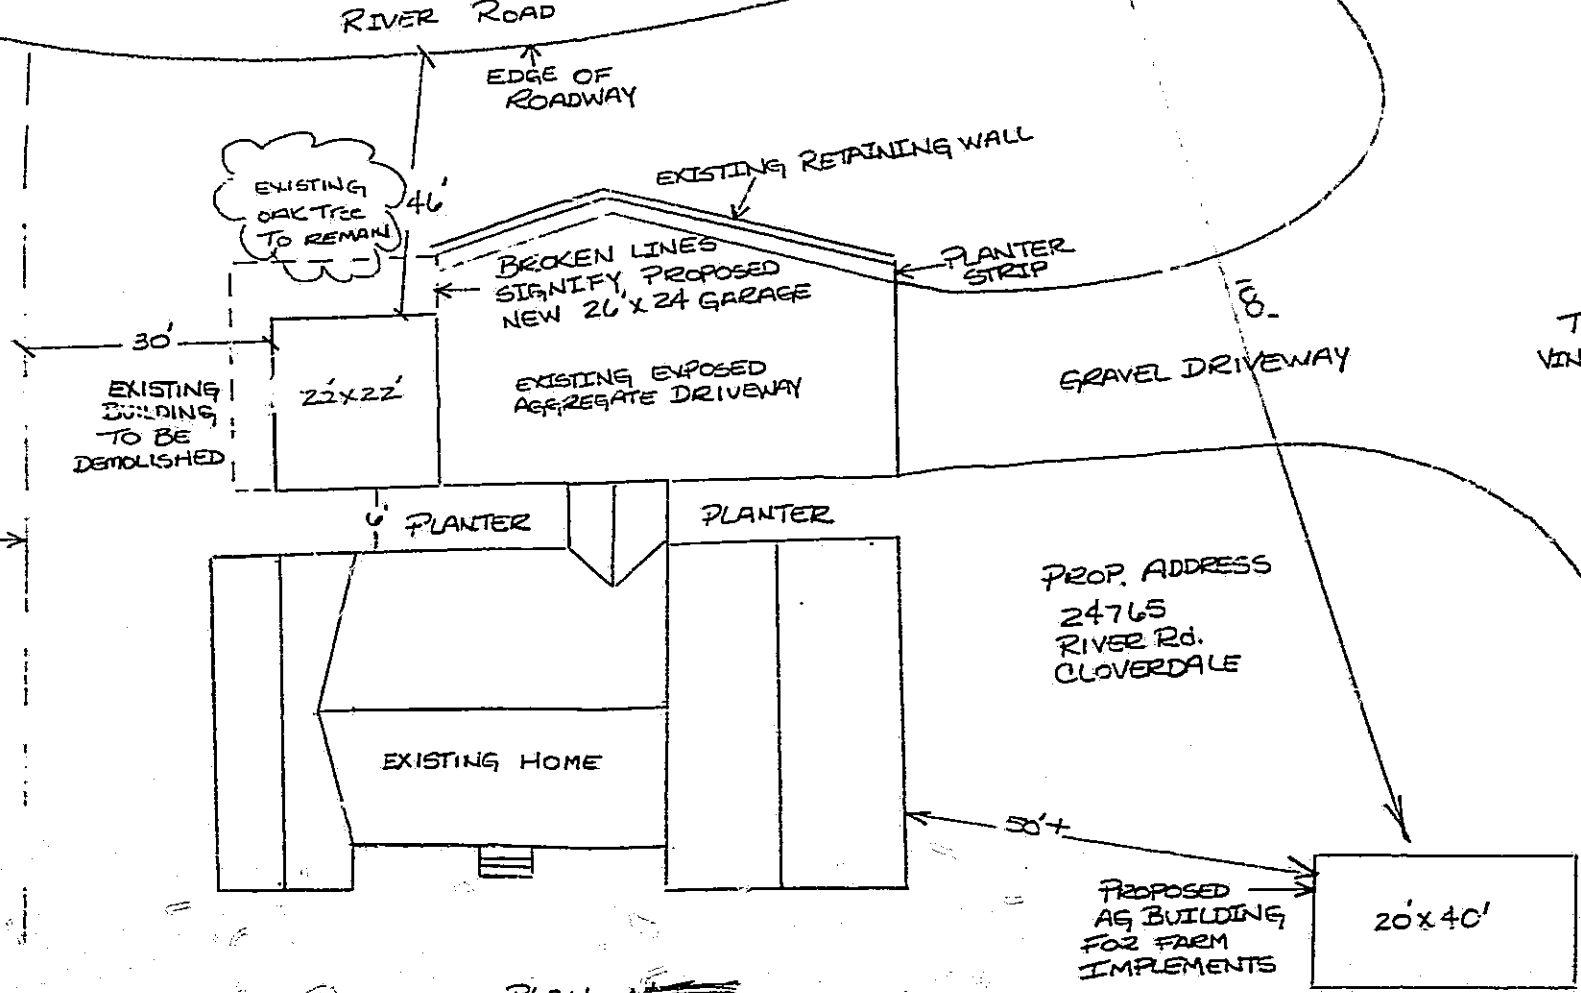 RIVER ROAD
EDGE OF
ROADWAY
EXISTING
OAK TREE
TO REMAIN
46'
EXISTING RETAINING WALL
BROKEN LINES
SIGNIFY PROPOSED
NEW 26'X24 GARAGE
PLANTER
STRIP
30'
EXISTING
BUILDING
TO BE
DEMOLISHED
22'X22'
EXISTING EXPOSED
AGGREGATE DRIVEWAY
GRAVEL DRIVEWAY
VIN
6'
PLANTER
PLANTER
PROP. ADDRESS
24765
RIVER Rd.
CLOVERDALE
EXISTING HOME
50'+
PROPOSED
AG BUILDING
FOR FARM
IMPLEMENTS
20'X40'